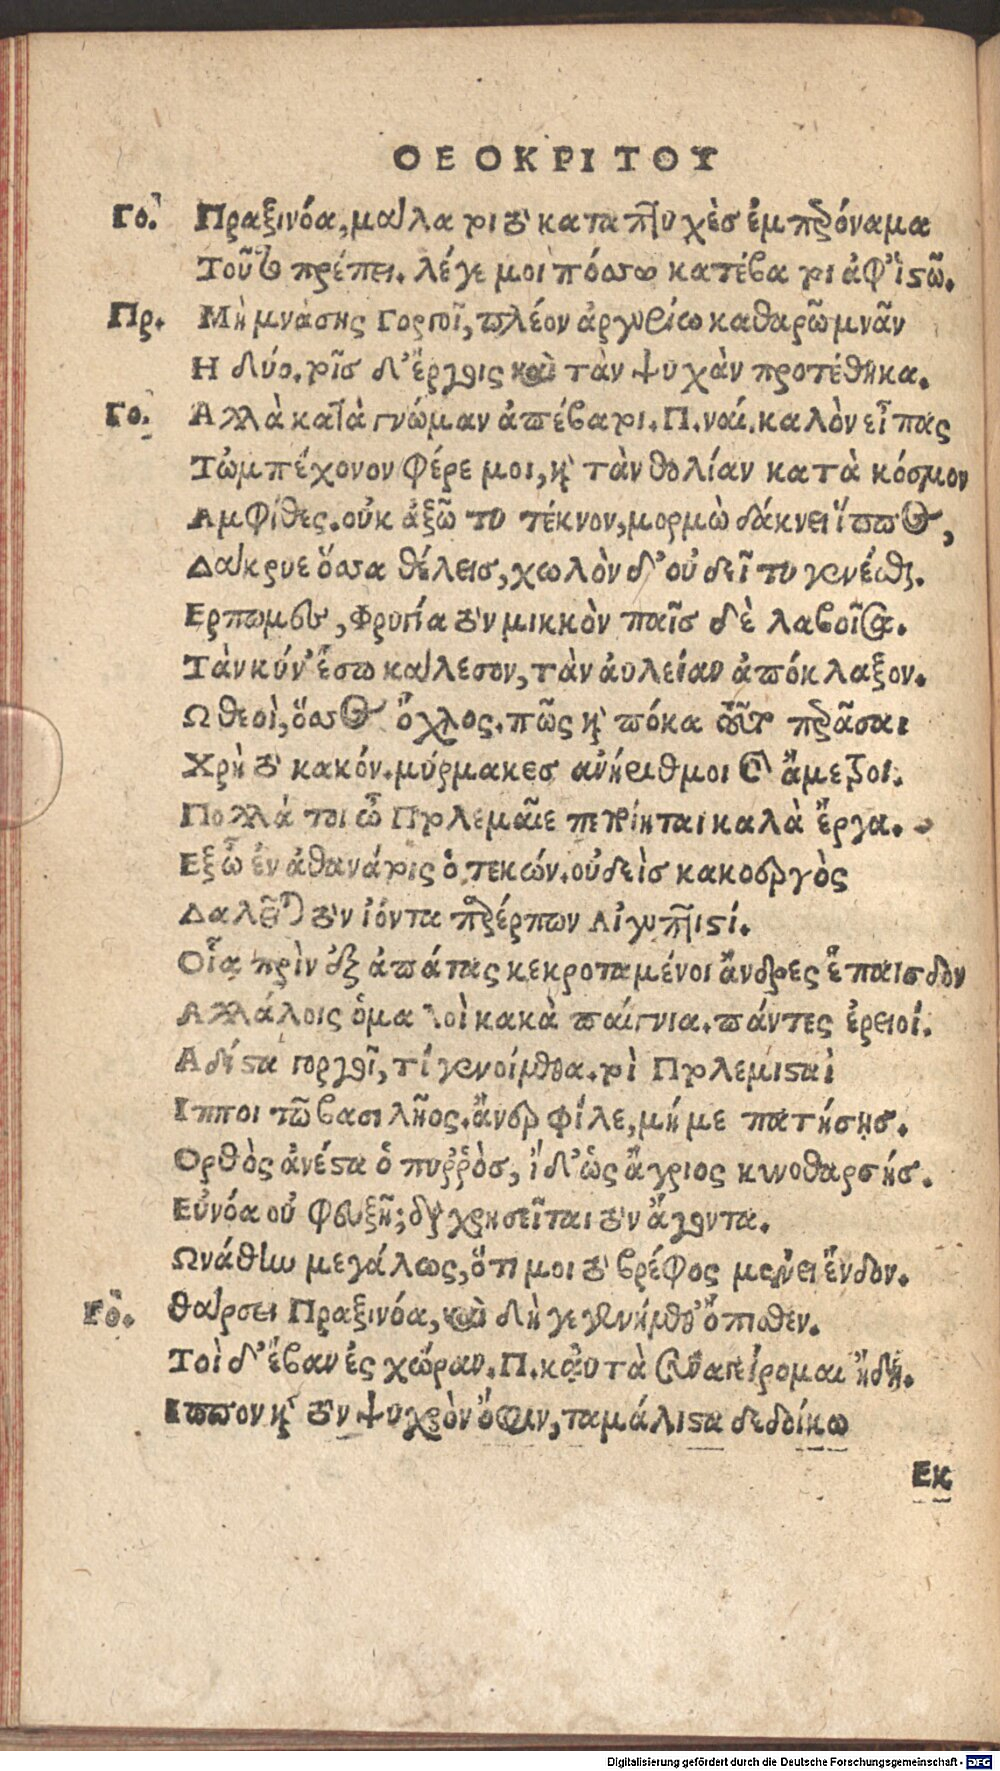 ΘΕΟΚΡΙΤΟΥ
Γο. Πραξινόα, μάλα τοι τὸ καταπτυχὲς ἐμπερόναμα
Τοῦτο πρέπει. λέγε μοι πόσσω κατέβα τοι ἀφ' ἱστῶ.
Πρ. Μὴ μνάσης Γοργοῖ, πλέον ἀργυρίω καθαρῶ μνᾶν
Η δύο. τοῖς δ' ἔργοις καὶ τὰν ψυχὰν προτέθηκα.
Γο. Αλλὰ κατὰ γνώμαν ἀπέβα τοι. Π. ναί. καλὸν εἶπας
Τὠμπέχονον φέρε μοι, καὶ τὰν θολίαν κατὰ κόσμον
Αμφίθες. οὐκ ἀξῶ τυ τέκνον, μορμὼ δάκνει ἵππος,
Δάκρυε ὅσσα θέλεις, χωλὸν δ' οὐ δεῖ τυ γενέσθαι.
Ερπωμες, Φρυγία τὸν μικκὸν παῖσδε λαβοῖσα.
Τὰν κύν' ἔσω κάλεσον, τὰν ἀυλείαν ἀπόκλαξον.
Ω θεοὶ, ὅσσος ὄχλος. πῶς καὶ πόκα τοῦτο περᾶσαι
Χρὴ τὸ κακόν. μύρμακες ἀνήριθμοι καὶ ἄμετροι.
Πολλά τοι ὦ Πτολεμαῖε πεποίηται καλὰ ἔργα.
Εξ ὧ ἐν ἀθανάτοις ὁ τεκών. οὐδεὶς κακοεργὸς
Δαλεῖται τὸν ἰόντα παρέρπων Αἰγυπτιστί.
Οἷα πρὶν ἐξ ἀπάτας κεκροταμένοι ἄνδρες ἔπαισδον
Αλλάλοις ὁμαλοὶ κακὰ παίγνια. πάντες ἐρειοί.
Αδίστα γοργοῖ, τί γενοίμεθα. τοὶ Πτολεμισταὶ
Ιπποι τῶ βασιλῆος. ἄνερ φίλε, μή με πατήσης.
Ορθὸς ἀνέστα ὁ πυῤῥὸς, ἴδ' ὡς ἄγριος κυνοθαρσής.
Εὐνόα οὐ φευξῆ; διαχρησεῖται τὸν ἄγοντα.
Ωνάθην μεγάλως, ὅτι μοι τὸ βρέφος μένει ἔνδον.
Γο. Θάρσει Πραξινόα, καὶ δὴ γεγενήμεθ' ὄπισθεν.
Τοὶ δ' ἔβαν ἐς χώραν. Π. καὐτὰ συναγείρομαι ἤδη.
Ιππον καὶ τὸν ψυχρὸν ὄφιν, ταμάλιστα δεδοίκω
Εκ
Digitalisierung gefördert durch die Deutsche Forschungsgemeinschaft - DFG